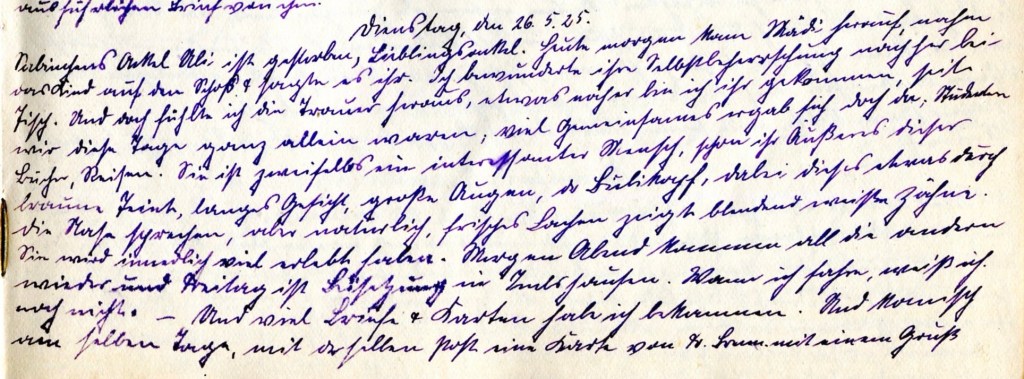 ausführlichen Brief von ihm.
Dienstag, den 26.5.25.
Sabinchens Onkel Uli ist gestorben, Lieblingsonkel. Heute morgen kam Mädi herauf, nahm
das Kind auf den Schoß & sagte es ihr. Ich bewunderte ihre Selbstbeherrschung nachher bei
Tisch. Und doch fühlte ich die Trauer heraus, etwas näher bin ich ihr gekommen, seit
wir diese Tage ganz allein waren; viel Gemeinsames ergab sich doch da, Studenten
Bücher, Reisen. Sie ist zweifellos ein interessanter Mensch, schon ihr Äußeres dieser
braune Teint, langes Gesicht, große Augen, der Bubikopf, dabei dieses etwas durch
die Nase sprechen, aber natürlich, frisches Lachen zeigt blendend weiße Zähne.
Sie wird innerlich viel erlebt haben. Morgen Abend kommen all die andern
wieder und Freitag ist in Wann ich fahre, weiß ich
noch nicht. – Und viel Briefe & Karten habe ich bekommen. Und komisch
am selben Tage, mit derselben Post eine Karte von mit einem Gruß